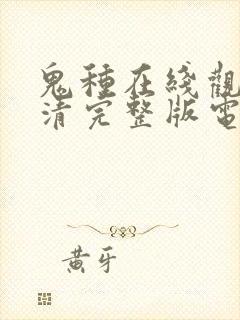 鬼種在綫觀
清完整版電
黃牙